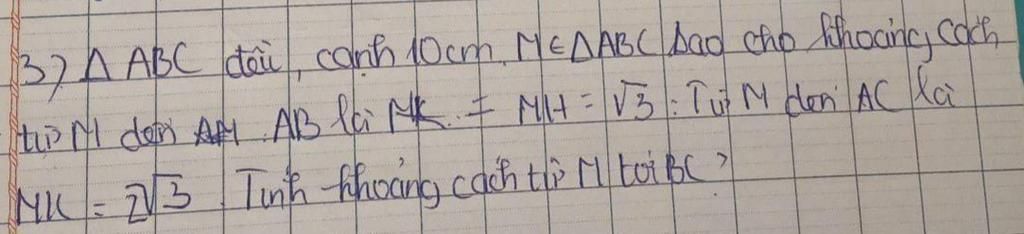 3) Δ ABC đều, cạnh 10cm. M ∈ ΔABC sao cho khoảng cách
từ M đến AB là MH = √3. Từ M đến AC là
MK = 2√3. Tính khoảng cách từ M tới BC?